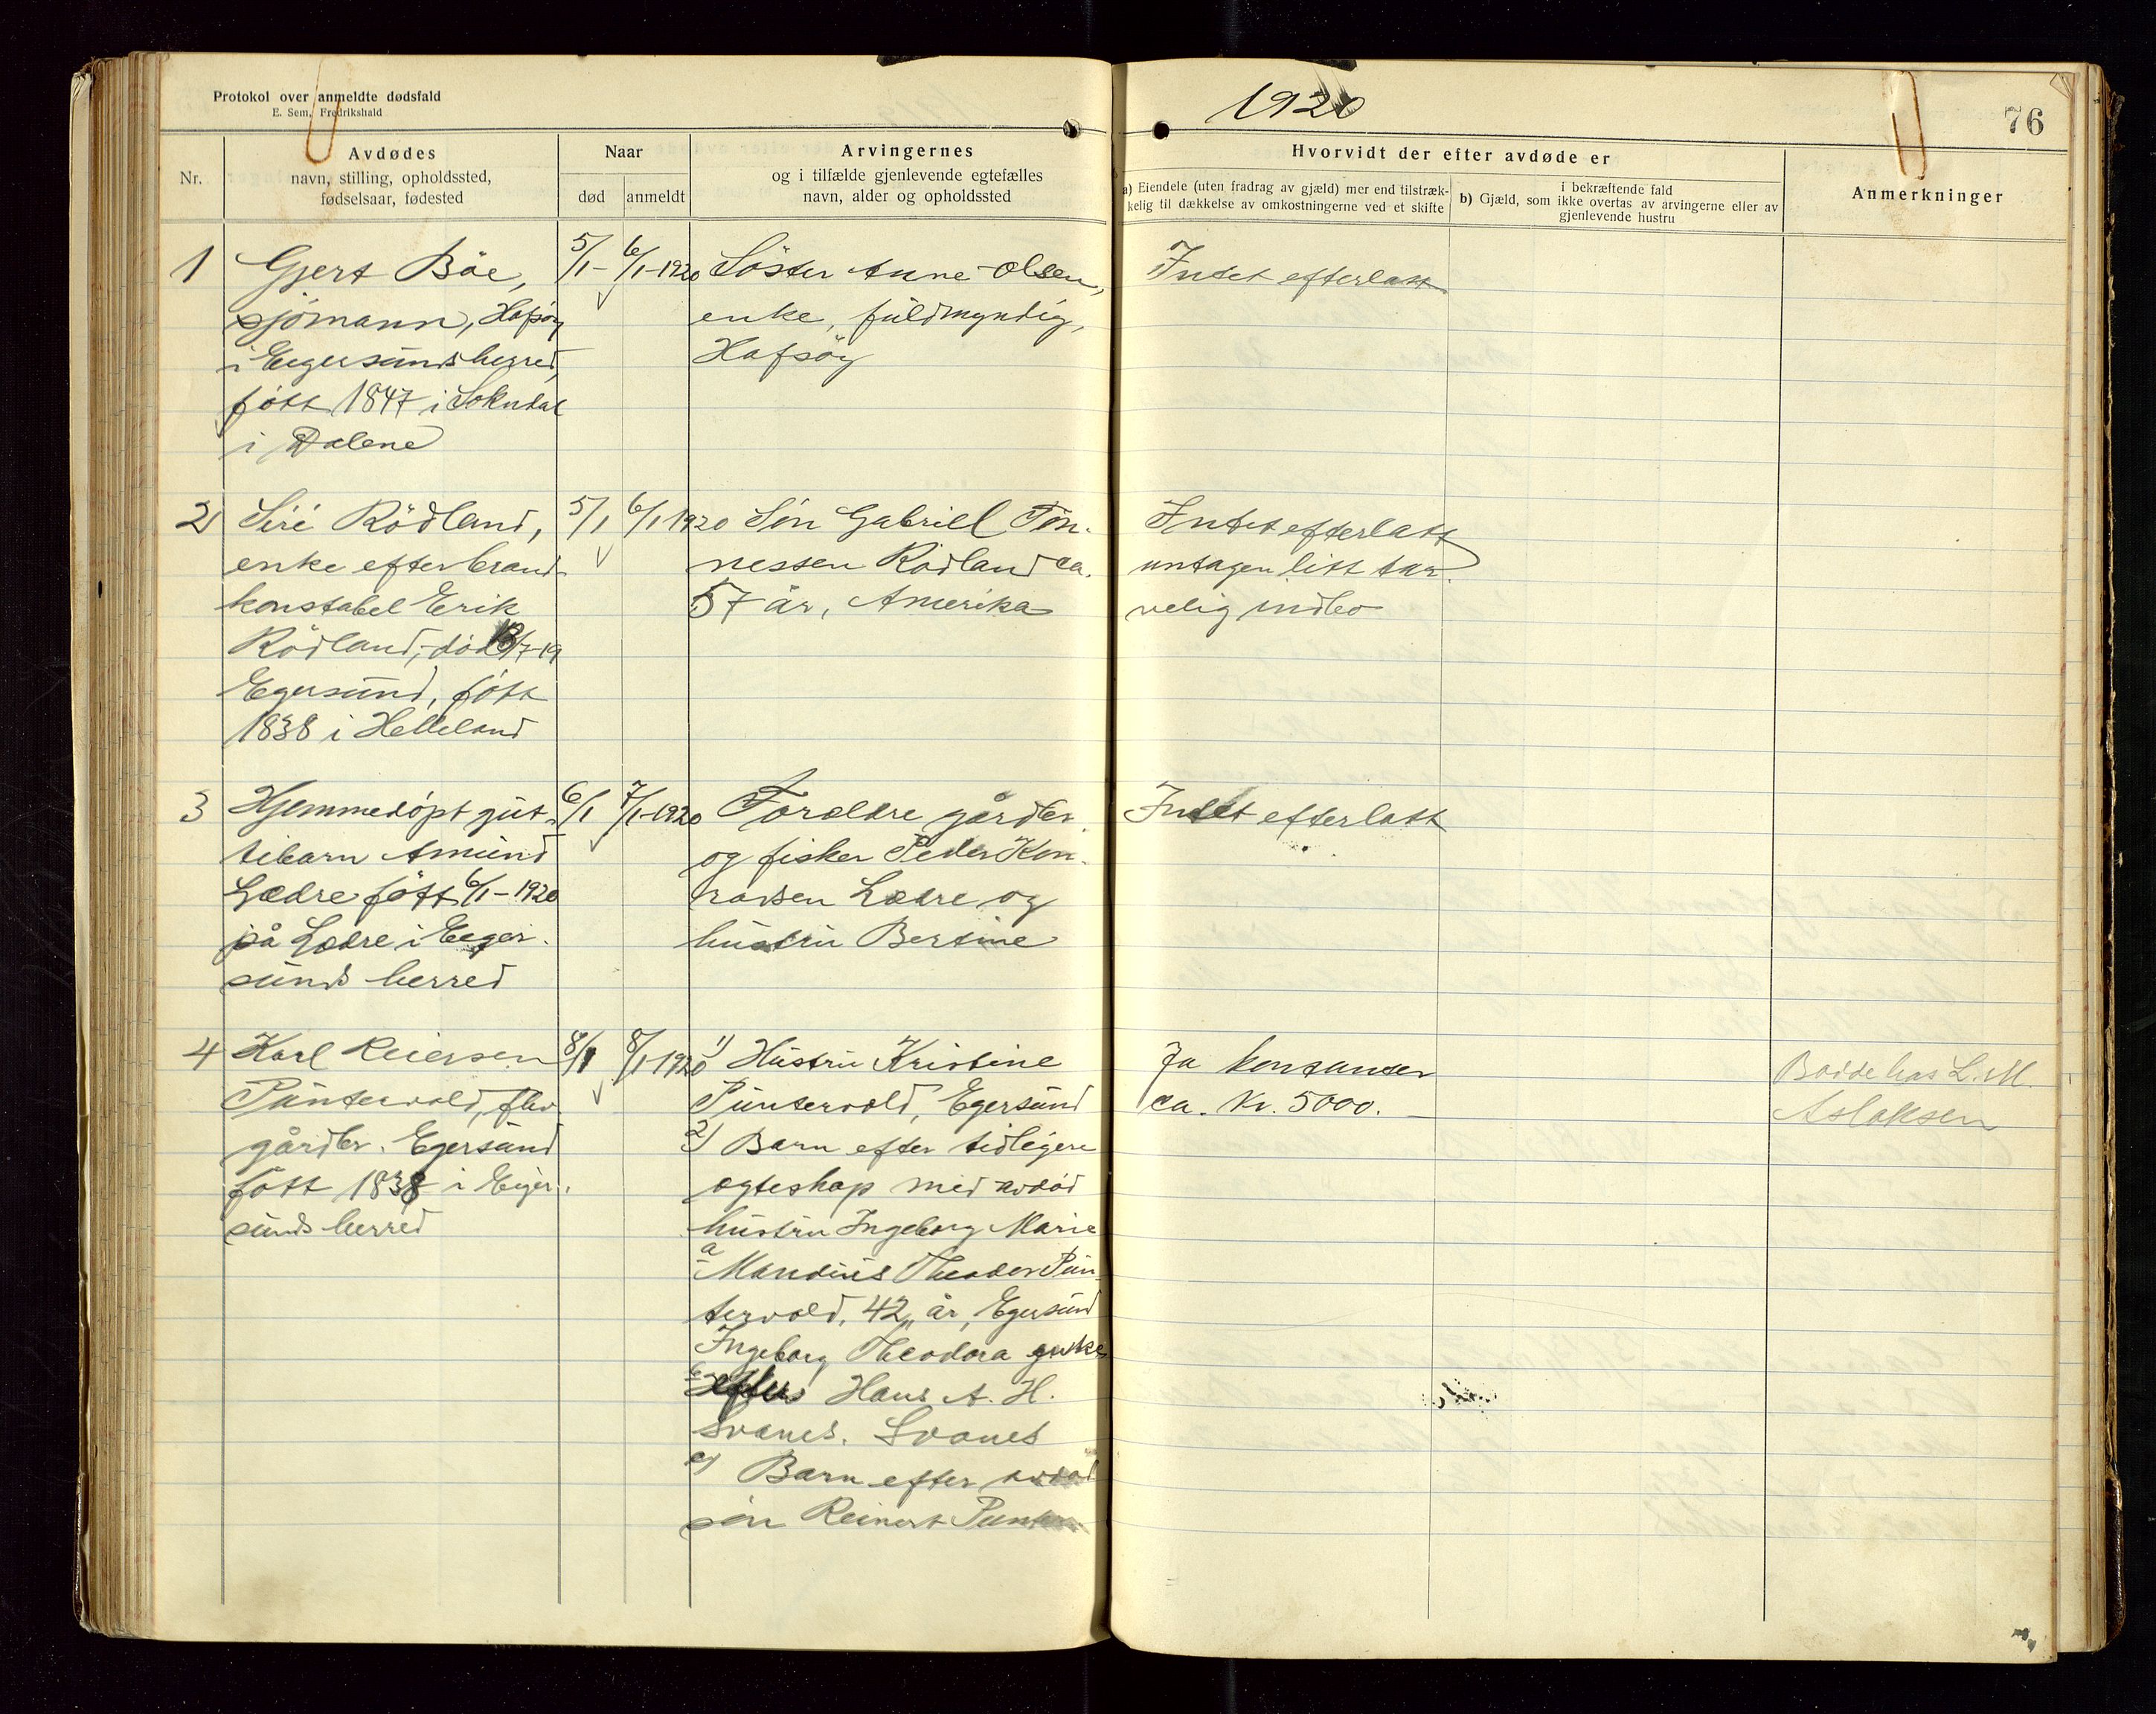 Protokol over anmeldte dødsfald
E. Sem, Fredrikshald
1920
76
Nr.
Avdødes
navn, stilling, opholdssted,
fødselsaar, fødested
Naar
død
anmeldt
Arvingernes
og i tilfælde gjenlevende egtefælles
navn, alder og opholdssted
Hvorvidt der efter avdøde er
a) Eiendele (uten fradrag av gjæld) mer end tilstræk-
kelig til dækkelse av omkostningerne ved et skifte
i bekræftende fald
b) Gjæld, som ikke overtas av arvingerne eller av
gjenlevende hustru
Anmerkninger
1
Gjert Böe,
sjömann, Hafsöy
i Eigersunds herred,
född 1847 i Sokndal
i Dalene
5/1 -
6/1-1920
Söster Anne Olsen,
enke, fuldmyndig,
Hafsöy
Intet efterlatt
2
Siri Rödland,
enke efter brand-
konstabel Erik
Rödland, död /7-19
Egersund, fött
1838 i Helleland
5/1
6/1 1920
Sön Gabriel Tön-
nessen Rödland ca.
57 år, Amerika
Intet efterlatt
untagen litt tar-
velig indbo
3
Hjemmedöpt gut-
tebarn Amund
Lædre fött 6/1-1920
på Lædre i Eiger-
sunds herred
6/1
7/1-1920
Forældre gårdbr.
og fisker Peder Kon-
radsen Lædre og
hustru Bertine
Intet efterlatt
4
Karl Reiersen
Puntervold, fhv.
gårdbr. Egersund
fött 1838 i Eiger-
sunds herred
8/1
8/1-1920
1) Hustru Kristine
Puntervold, Egersund
2) Barn efter tidligere
ægteskap med avdöd
hustru Ingeborg Marie
a Mandius Theodor Pun-
tervold, 42 år, Egersund
Ingeborg Theodora enke
b efter Hans A. H.
Svanes. Svanes
c) Barn efter avdöd
sön Reinert Punter-
Ja kontanter
ca. Kr. 5000.-
Boddehas L. M.
Aslaksen